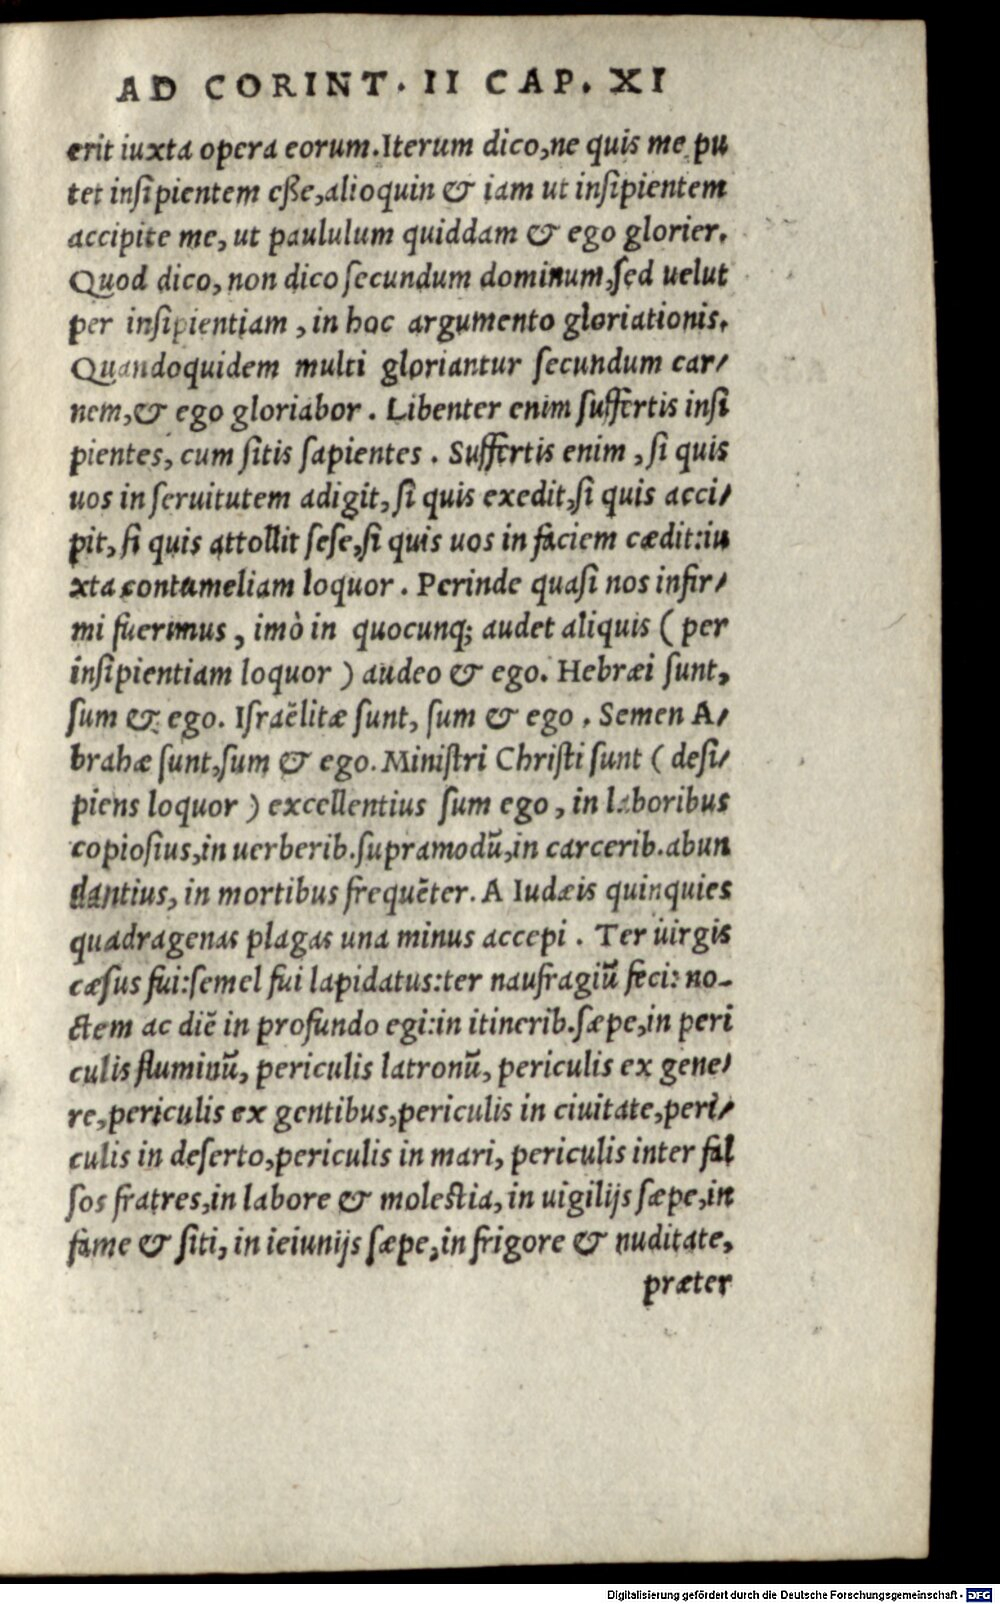 AD CORINT. II CAP. XI
erit iuxta opera eorum. Iterum dico, ne quis me pu
tet inſipientem eſſe, alioquin & iam ut inſipientem
accipite me, ut paululum quiddam & ego glorier.
Quod dico, non dico ſecundum dominum, ſed uelut
per inſipientiam, in hoc argumento gloriationis.
Quandoquidem multi gloriantur ſecundum car/
nem, & ego gloriabor. Libenter enim ſuffertis inſi
pientes, cum ſitis ſapientes. Suffertis enim, ſi quis
uos in ſeruitutem adigit, ſi quis exedit, ſi quis acci/
pit, ſi quis attollit ſeſe, ſi quis uos in faciem cædit: iu
xta contumeliam loquor. Perinde quaſi nos infir/
mi fuerimus, imò in quocunq; audet aliquis (per
inſipientiam loquor) audeo & ego. Hebræi ſunt,
ſum & ego. Iſraëlitæ ſunt, ſum & ego. Semen A/
brahæ ſunt, ſum & ego. Miniſtri Chriſti ſunt (deſi/
piens loquor) excellentius ſum ego, in laboribus
copioſius, in uerberib. ſupramodũ, in carcerib. abun
dantius, in mortibus frequẽter. A Iudæis quinquies
quadragenas plagas una minus accepi. Ter uirgis
cæſus fui: ſemel fui lapidatus: ter naufragiũ feci: no-
ctem ac diẽ in profundo egi: in itinerib. ſæpe, in peri
culis fluminũ, periculis latronũ, periculis ex gene/
re, periculis ex gentibus, periculis in ciuitate, peri/
culis in deſerto, periculis in mari, periculis inter fal
ſos fratres, in labore & moleſtia, in uigilijs ſæpe, in
fame & ſiti, in ieiunijs ſæpe, in frigore & nuditate,
præter
Digitalisierung gefördert durch die Deutsche Forschungsgemeinschaft - DFG